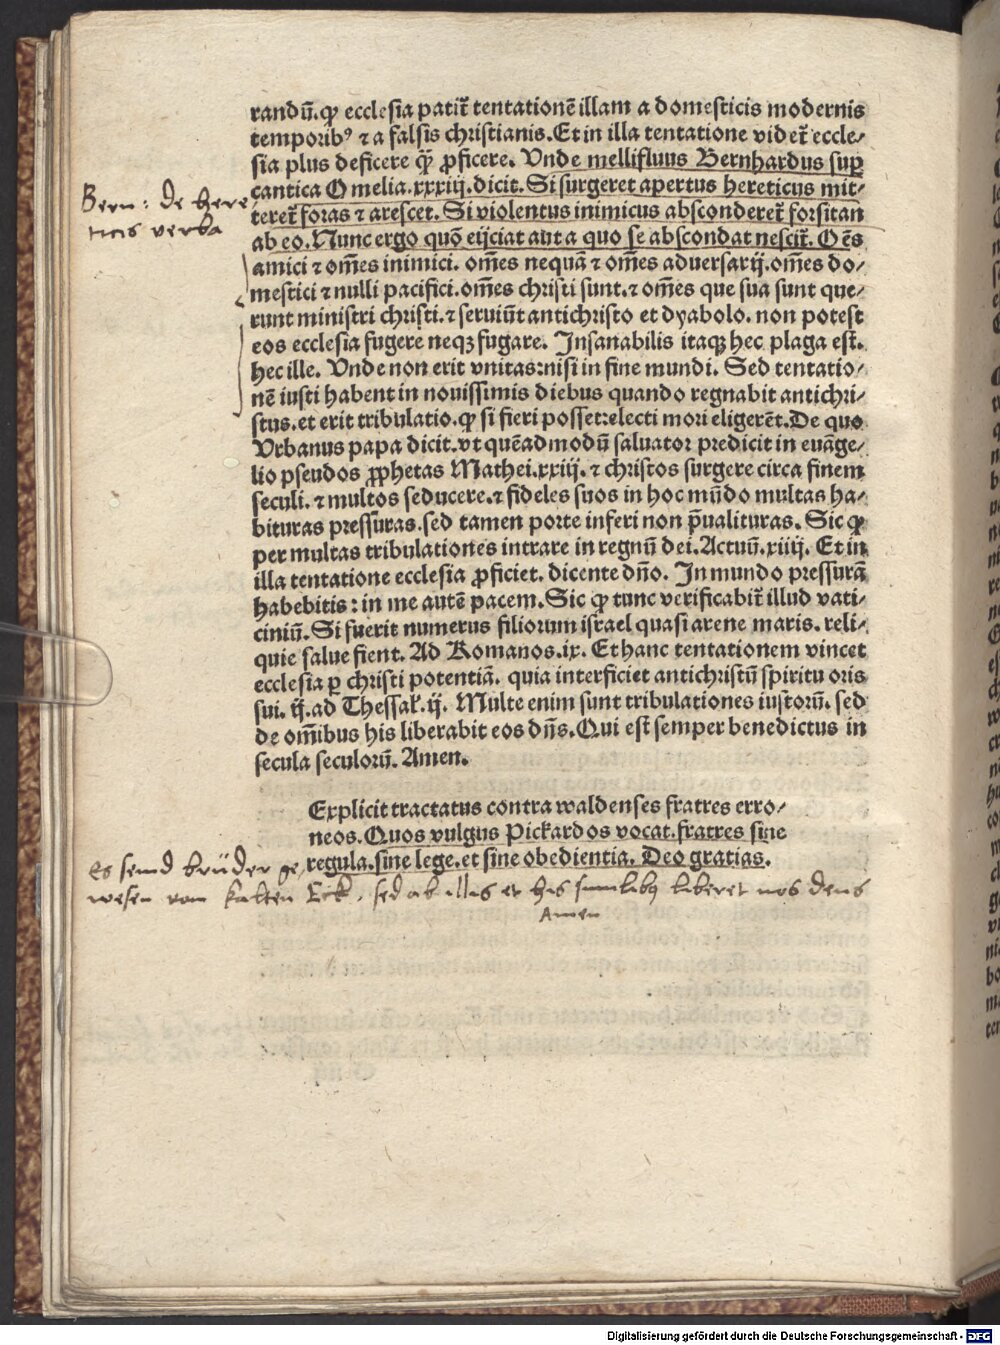 randū. ꝙ ecclesia patit̃ tentationē illam a domesticis modernis
temporibꝰ ⁊ a falsis christianis. Et in illa tentatione videt̃ eccle⸗
sia plus deficere qȝ̃ ꝓficere. Vnde mellifluus Bernhardus suꝑ
cantica Omelia. xxxiij. dicit. Si surgeret apertus hereticus mit⸗
teret̃ foras ⁊ arescet. Si violentus inimicus absconderet̃ forsitan
ab eo. Nunc ergo quō eijciat aut a quo se abscondat nescit̃. O ēs
amici ⁊ om̄es inimici. om̄es nequā ⁊ om̄es aduersarij. om̄es do⸗
mestici ⁊ nulli pacifici. om̄es christi sunt. ⁊ om̄es que sua sunt que⸗
runt ministri christi. ⁊ seruiūt antichristo et dyabolo. non potest
eos ecclesia fugere neqȝ fugare. Insanabilis itaqȝ hec plaga est.
hec ille. Vnde non erit vnitas: nisi in fine mundi. Sed tentatio⸗
nē iusti habent in nouissimis diebus quando regnabit antichri⸗
stus. et erit tribulatio. ꝙ si fieri posset: electi mori eligerēt. De quo
Vrbanus papa dicit. vt quēadmodū saluator predicit in euāge⸗
lio pseudos ꝓphetas Mathei. xxiij. ⁊ christos surgere circa finem
seculi. ⁊ multos seducere. ⁊ fideles suos in hoc mūdo multas ha⸗
bituras pressuras. sed tamen porte inferi non p̄ualituras. Sic ꝙ
per multas tribulationes intrare in regnū dei. Actuū. xiiij. Et in
illa tentatione ecclesia ꝓficiet. dicente dn̄o. In mundo pressurā
habebitis: in me autē pacem. Sic ꝙ tunc verificabit̃ illud vati⸗
ciniū. Si fuerit numerus filiorum israel quasi arene maris. reli⸗
quie salue fient. Ad Romanos. ix. Et hanc tentationem vincet
ecclesia ꝑ christi potentiā. quia interficiet antichristū spiritu oris
sui. ij. ad Thessał. ij. Multe enim sunt tribulationes iustorū. sed
de om̄ibus his liberabit eos dn̄s. Qui est semper benedictus in
secula seculorū. Amen.
Bern: de here
ticis verba
Explicit tractatus contra waldenses fratres erro⸗
neos. Quos vulgus Pickardos vocat. fratres sine
regula. sine lege. et sine obedientia. Deo gratias.
Es seind brüder ge
wesen vom kalten Eck. sed ab illis et his similibꝫ liberet nos deus
Amen
Digitalisierung gefördert durch die Deutsche Forschungsgemeinschaft - DFG